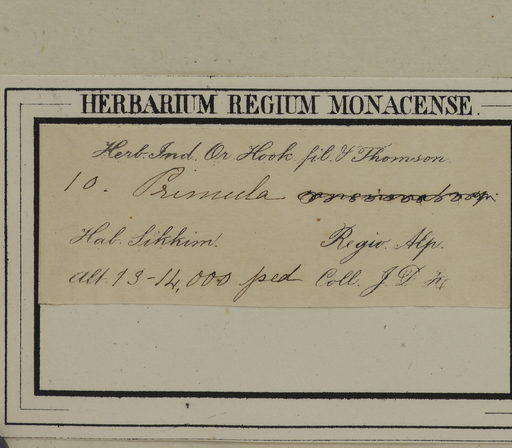 HERBARIUM REGIUM MONACENSE.
Herb. Ind. Or Hook fil. & Thomson
10. Primula
Hab. Sikkim. Regio. Alp.
Alt. 13-14,000 ped Coll. J. D. H